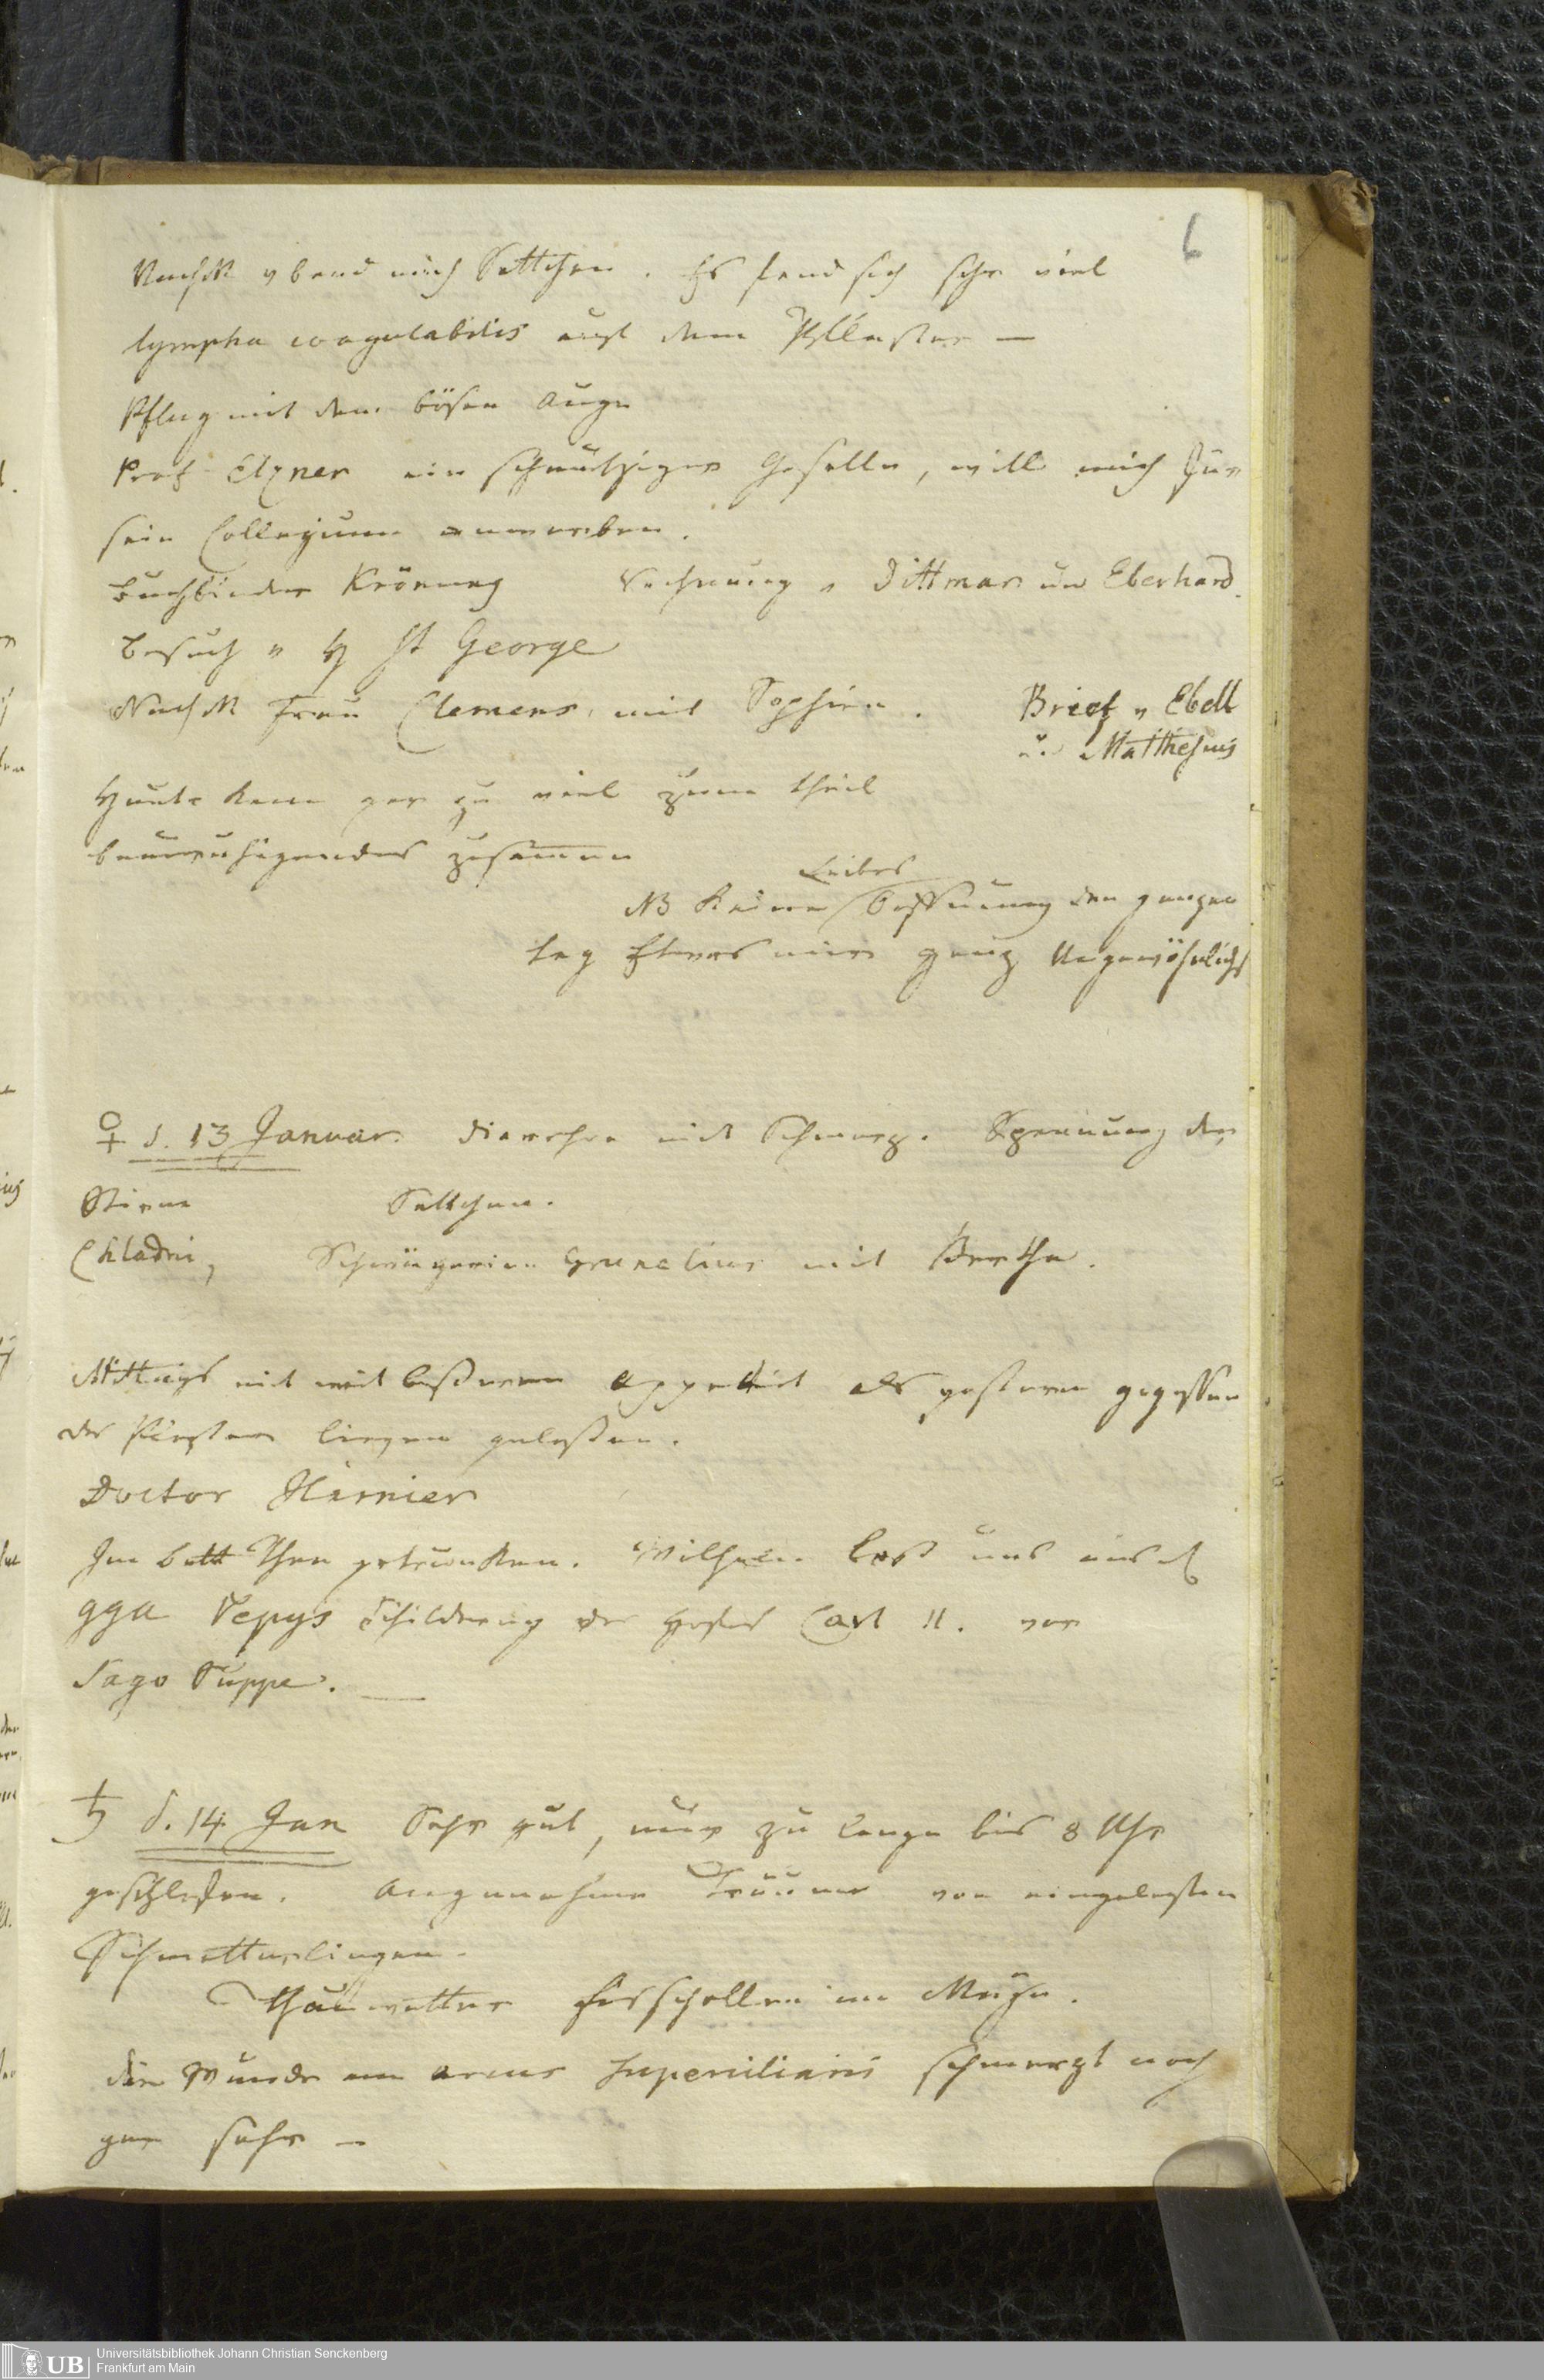 6
NachM verband mich Settchen. Es fand sich sehr viel
lympha coagulabilis auf dem Pflaster —
Pflug mit dem bösen Auge
Prof Elsner ein schmutziger Geselle, will mich für
sein Collegium anwerben.
Buchbinder Krönung Rechnung v Dittmar u Eberhard.
Besuch v H St George
NachM Frau Clemens mit Sophien. Brief v Ebell
u. Matthesius
Heute kam gar zu viel zum theil
beunruhigendes zusammen
NB Keine Leibes Oeffnung den ganzen
Tag Etwas mir ganz Ungewöhnliches
♀ d. 13 Januar. Diarrhoe mit Schmerz. Spannung der
Stirne Settchen.
Chladni, Schwägerin Grunelius mit Bertha.
Mittags mit mit besserem Appetit als gestern gegessen
das Pflaster liegen gelassen.
Doctor Harnier
Im Bett Thee getrunken. Wilhelm las uns aus d
gga Pepys Schilderung des Hofes Carl II. vor
Sago Suppe. —
♄ d. 14 Jan Sehr gut, nur zu lange bis 8 Uhr
geschlafen. Angenehme Träume von
Schmetterlingen.
Thauwetter Eisschollen im Mayn.
Die Wunde am arcus superciliaris schmerzt noch
gar sehr —
UB
Universitätsbibliothek Johann Christian Senckenberg
Frankfurt am Main